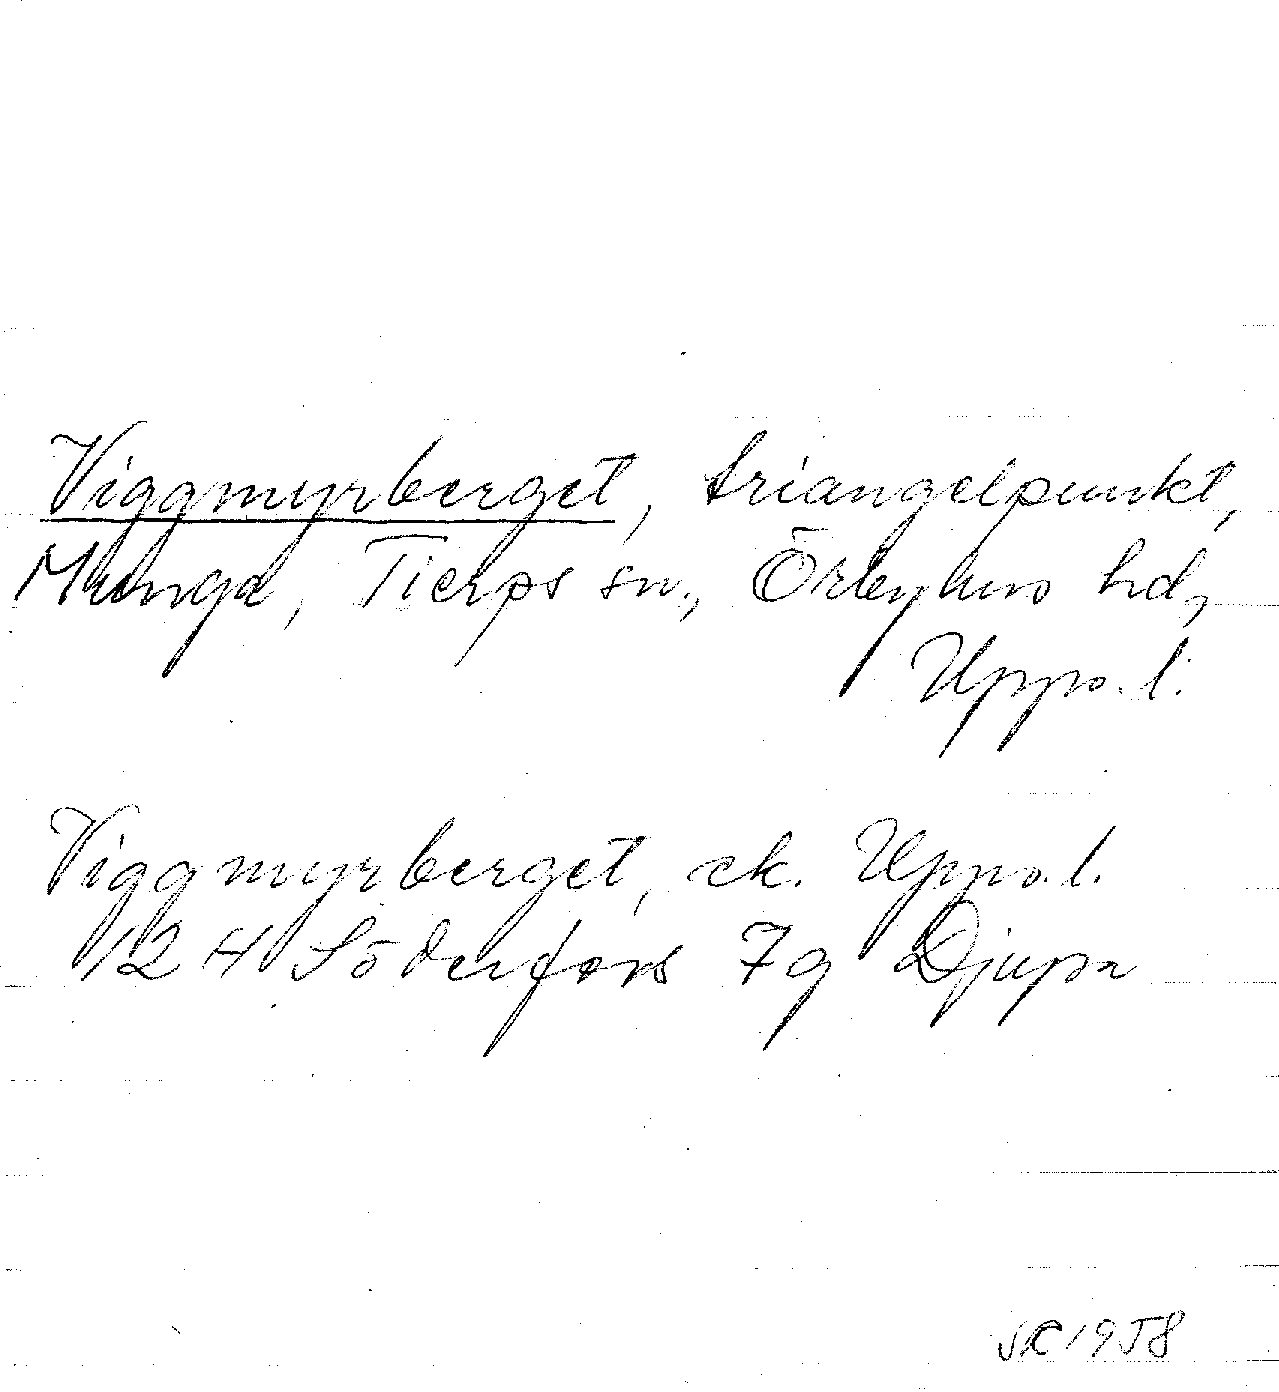 Viggmyrberget, triangelpunkt,
Munga, Tierps sn., Örbyhus hd,
Upps. l.
Viggmyrberget, ek. Upps. l.
12 H Söderfors 7g Djupa
1958